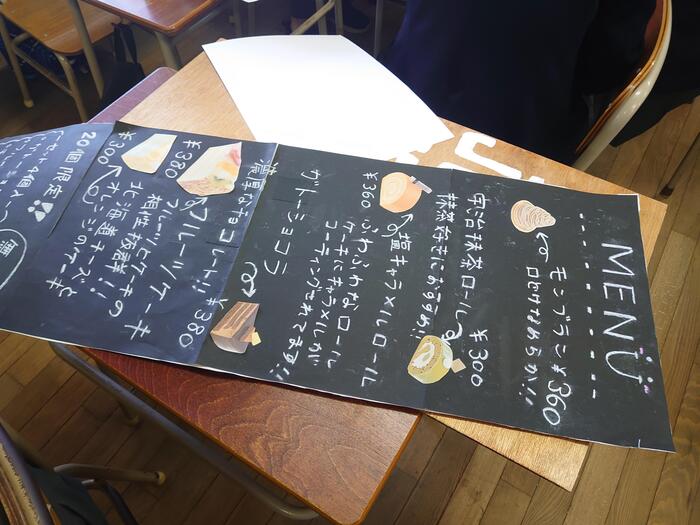 MENU
モンブラン ¥360
口どけなめらか!!
宇治抹茶ロール ¥300
抹茶好きにおすすめ!!
¥360
塩キャラメルロール
ふわふわなロール
ケーキにキャラメルが
コーティングされてます!!
ガトーショコラ
濃厚なチョコレート!! ¥380
¥380
フルーツケーキ
フルーツとケーキの
相性抜群!!
¥300
北海道チーズと
オレンジのケーキ
20個限定